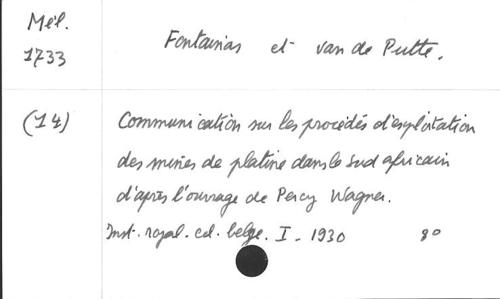 Mél.
1733
Fontainas et van de Putte.
(14)
Communication sur les procédés d'exploitation
des mines de platine dans le sud africain
d'après l'ouvrage de Percy Wagner.
Inst. royal. col. belge. I - 1930 8°